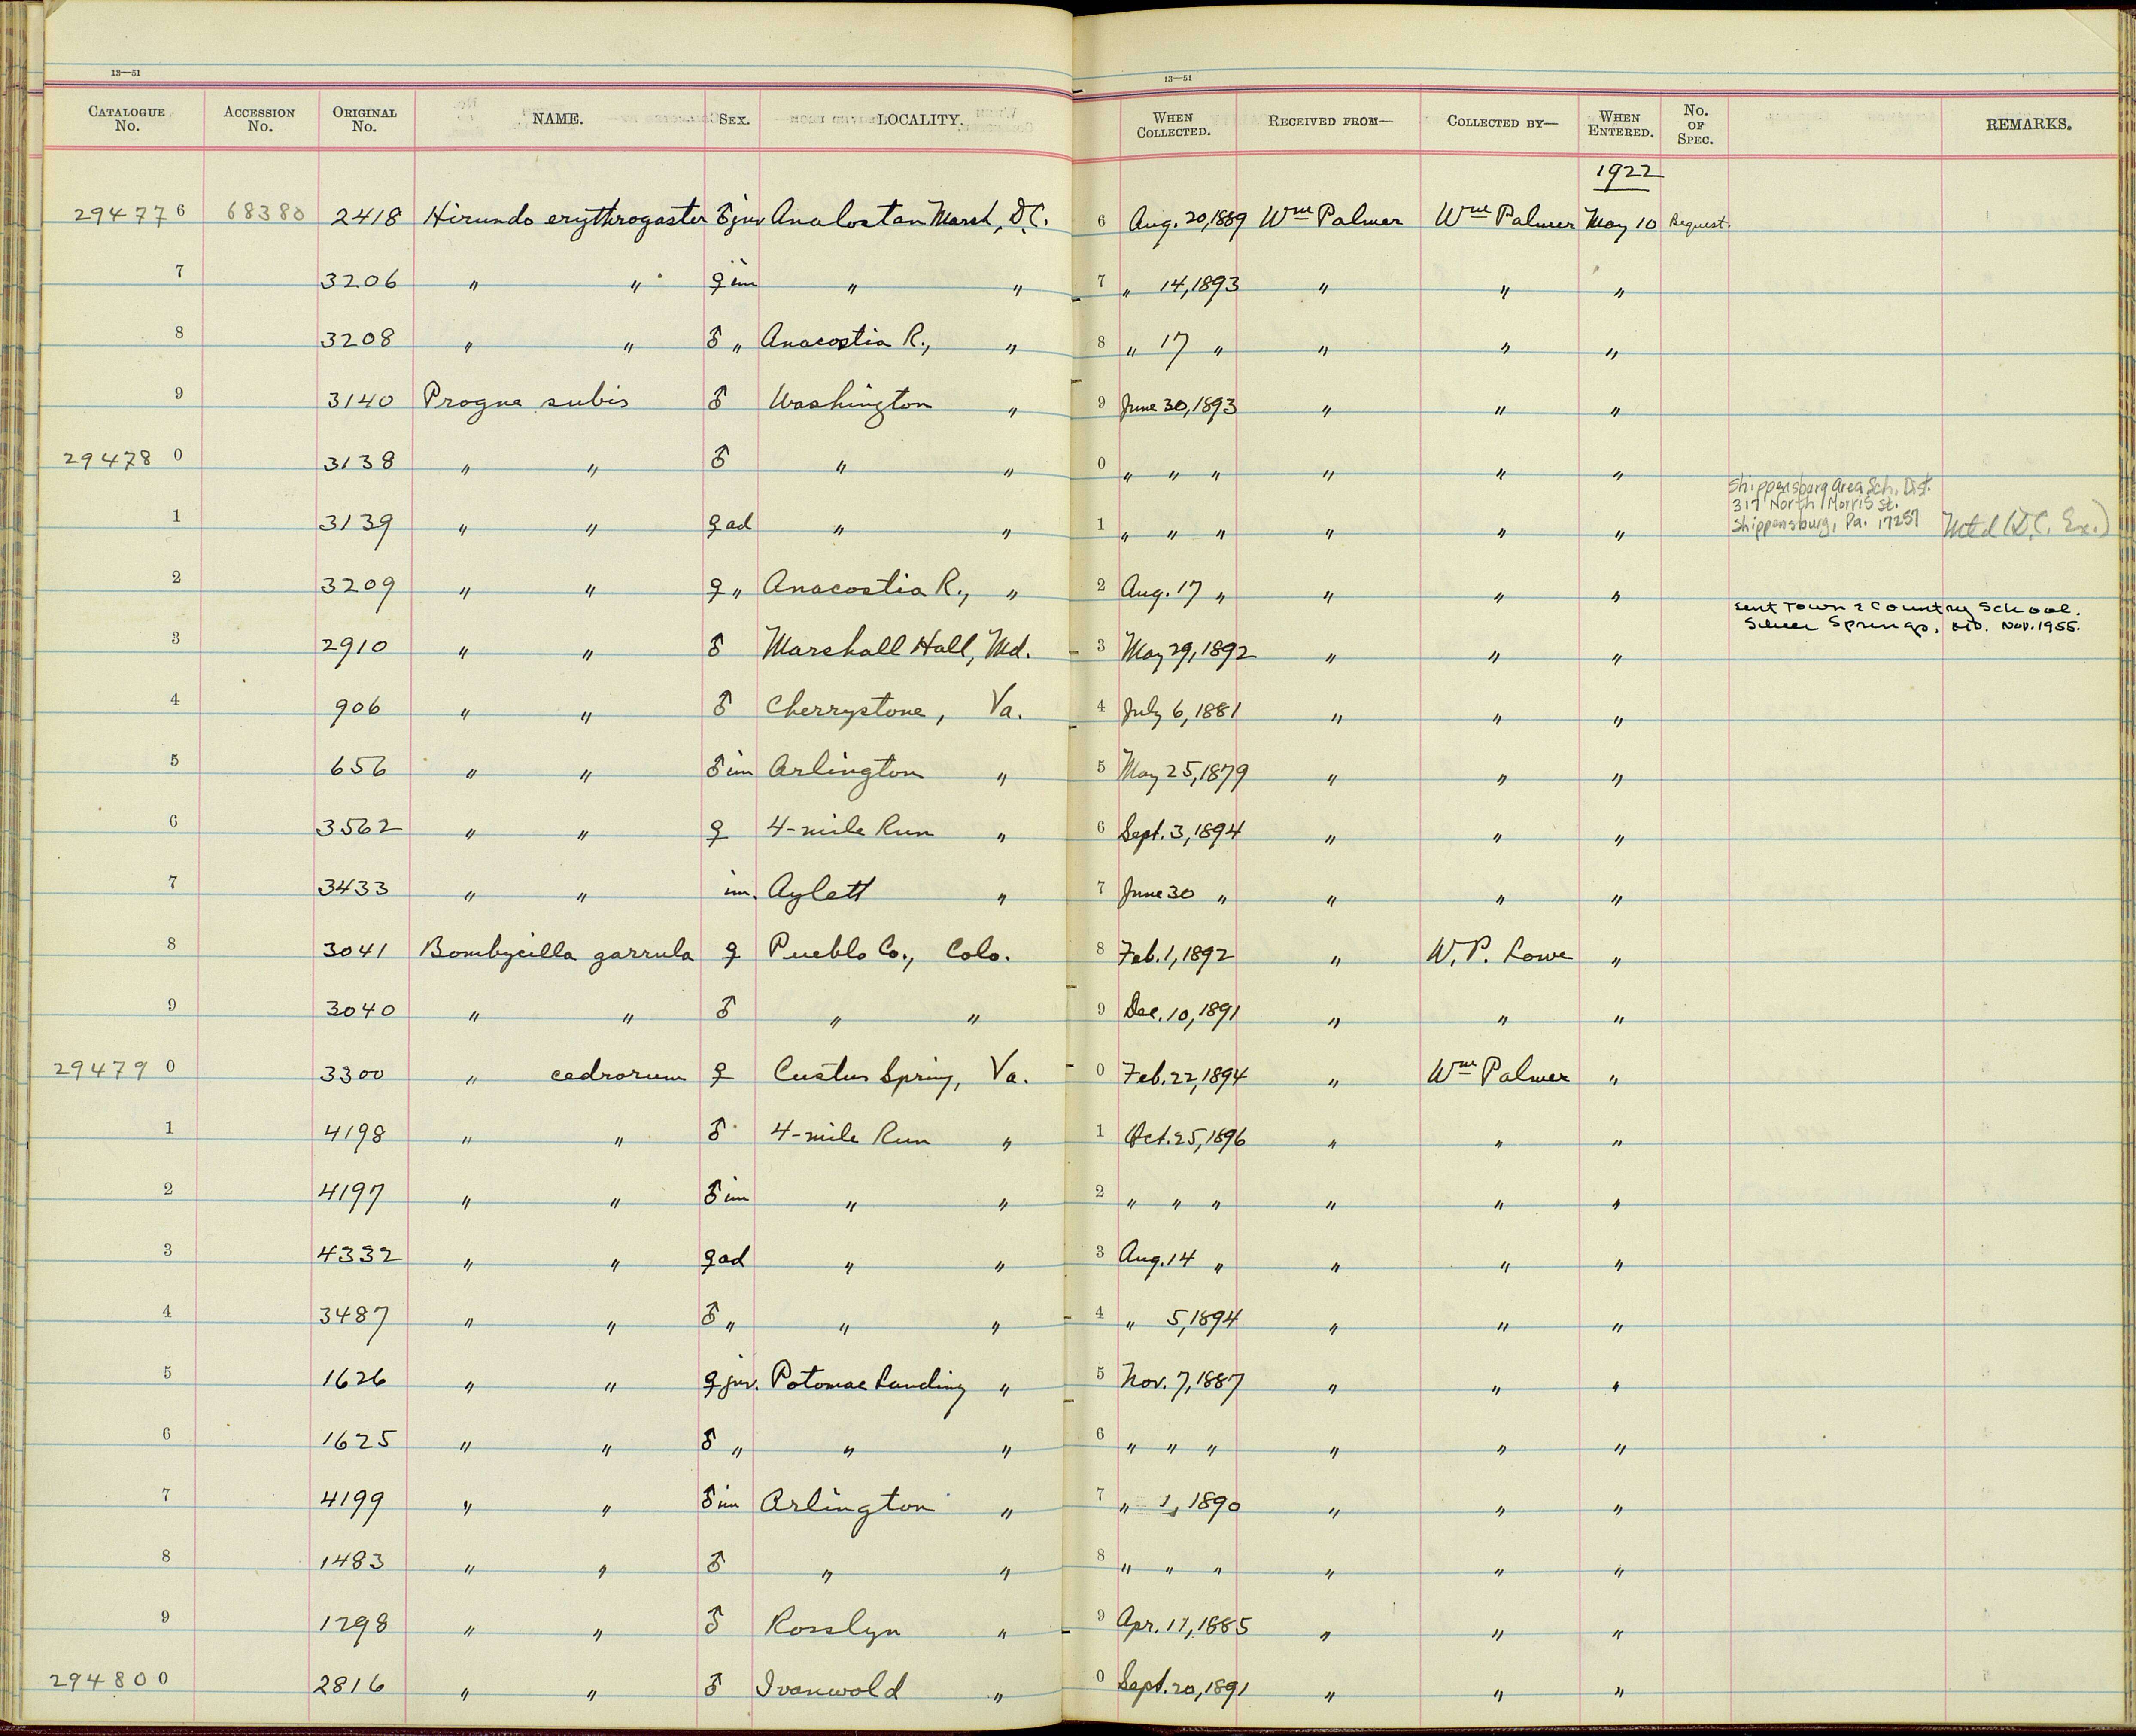 13—51
13—51
CATALOGUE No. ACCESSION No. ORIGINAL No. NAME. SEX. LOCALITY. WHEN COLLECTED. RECEIVED FROM— COLLECTED BY— WHEN ENTERED. No. OF SPEC. REMARKS.
1922
294776 68380 2418 Hirundo erythrogaster ♂ juv Analostan Marsh, D.C. 6 Aug. 20, 1889 Wm Palmer Wm Palmer May 10 Bequest.
7 3206 " " ♀ im " " 7 " 14, 1893 " " "
8 3208 " " ♂ " Anacostia R., " 8 " 17 " " " "
9 3140 Progne subis ♂ Washington " 9 June 30, 1893 " " "
294780 3138 " " ♂ " " 0 " " " " " "
Shippensburg Area Sch. Dist.
317 North Morris St.
1 3139 " " ♀ ad " " 1 " " " " " " Shippensburg, Pa. 17257 Mtd (D.C. Ex.)
2 3209 " " ♀ " Anacostia R., " 2 Aug. 17 " " " "
Sent Town & Country School.
Silver Springs, Md. Nov. 1955.
3 2910 " " ♂ Marshall Hall, Md. 3 May 29, 1892 " " "
4 906 " " ♂ Cherrystone, Va. 4 July 6, 1881 " " "
5 656 " " ♂ im Arlington " 5 May 25, 1879 " " "
6 3562 " " ♀ 4-mile Run " 6 Sept. 3, 1894 " " "
7 3433 " " im. Aylett " 7 June 30 " " " "
8 3041 Bombycilla garrula ♀ Pueblo Co., Colo. 8 Feb. 1, 1892 " W. P. Lowe "
9 3040 " " ♂ " " 9 Dec. 10, 1891 " " "
294790 3300 " cedrorum ♀ Custus Spring, Va. 0 Feb. 22, 1894 " Wm Palmer "
1 4198 " " ♂ 4-mile Run " 1 Oct. 25, 1896 " " "
2 4197 " " ♂ im " " 2 " " " " " "
3 4332 " " ♀ ad " " 3 Aug. 14 " " " "
4 3487 " " ♂ " " " 4 " 5, 1894 " " "
5 1626 " " ♀ juv. Potomac Landing " 5 Nov. 7, 1887 " " "
6 1625 " " ♂ " " " 6 " " " " " "
7 4199 " " ♂ im Arlington " 7 " 1, 1890 " " "
8 1483 " " ♂ " " 8 " " " " " "
9 1298 " " ♂ Rosslyn " 9 Apr. 17, 1885 " " "
294800 2816 " " ♂ Ivanwold " 0 Sept. 20, 1891 " " "